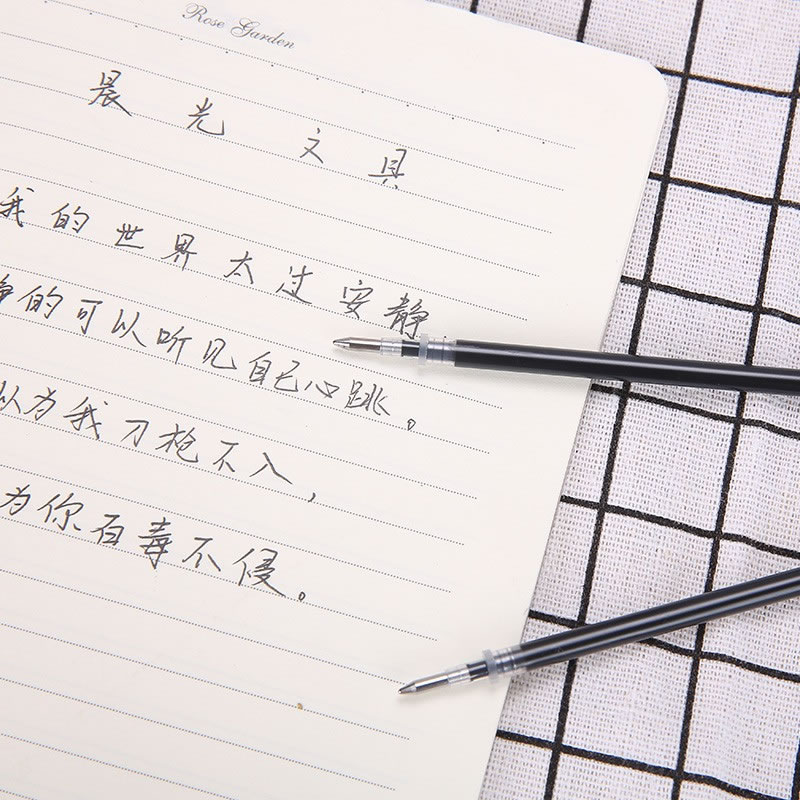 Rose Garden
晨光文具
我的世界太过安静
静的可以听见自己心跳。
以为我刀枪不入,
为你百毒不侵。